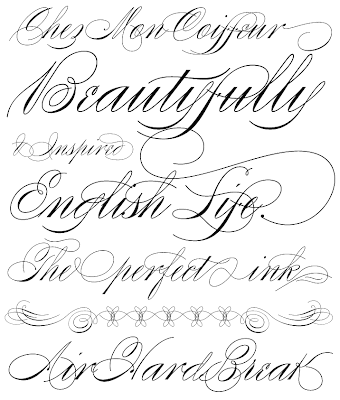 Chez Mon Coiffeur
Beautifully
& Inspired
English Life.
The perfect ink
Air Hard Break